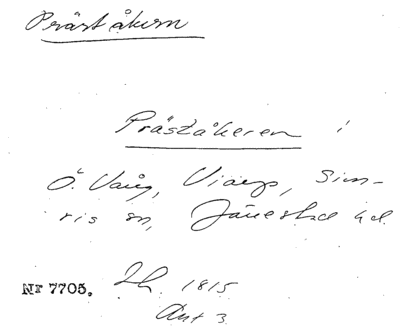 Präståkern
Präståkeren i
Ö. Vång, Viarp, Sim-
ris sn, Järrestad hd.
Nr 7705. 1815
Akt 3